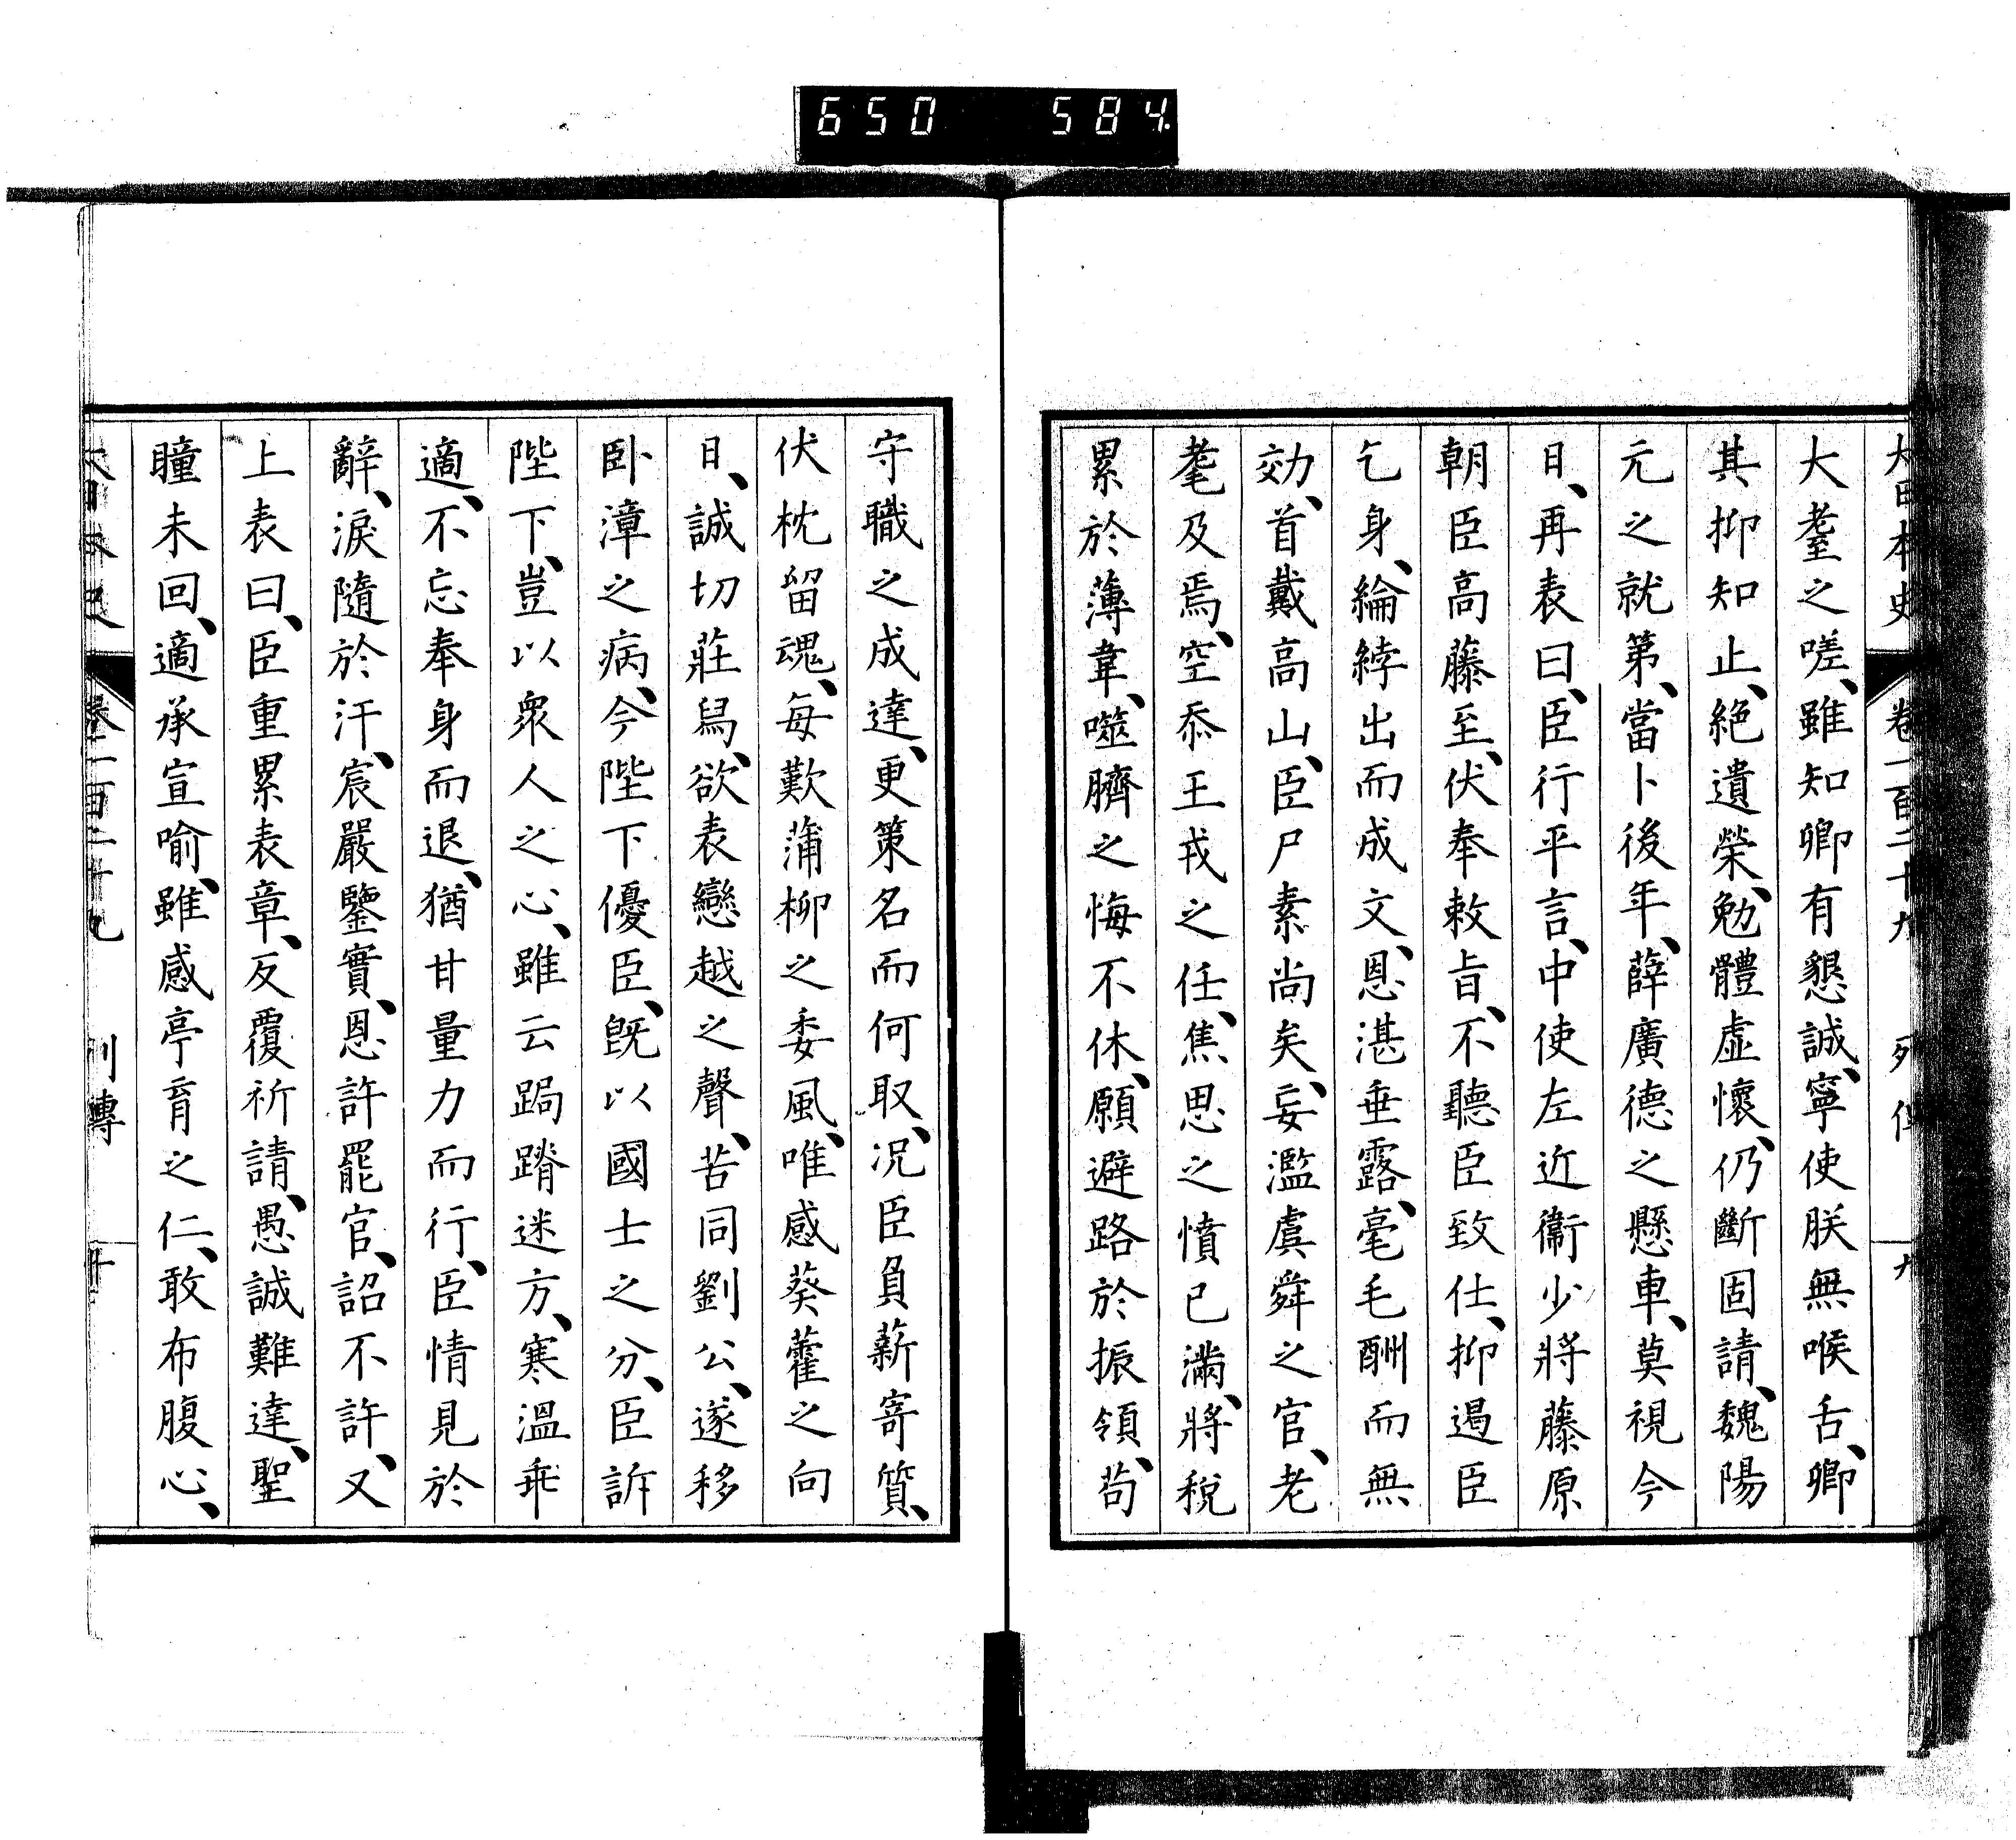 650 584
大日本史 卷一百二十九 列傳 九
大耋之嗟、雖知卿有懇誠、寧使朕無喉舌、卿
其抑知止、絕遺榮、勉體虛懷、仍斷固請、魏陽
元之就第、當卜後年、薛廣德之懸車、莫視今
日、再表曰、臣行平言、中使左近衞少將藤原
朝臣高藤至、伏奉敕旨、不聽臣致仕、抑遏臣
乞身、綸綍出而成文、恩湛垂露、毫毛酬而無
効、首戴高山、臣尸素尚矣、妄濫虞舜之官、老
耄及焉、空忝王戎之任、焦思之憤已滿、將稅
累於薄韋、噬臍之悔不休、願避路於振領、苟
守職之成達、更策名而何取、況臣負薪寄質、
伏枕留魂、每歎蒲柳之委風、唯感葵藿之向
日、誠切莊舄、欲表戀越之聲、苦同劉公、遂移
卧漳之病、今陛下優臣、既以國士之分、臣訴
陛下、豈以衆人之心、雖云跼蹐迷方、寒溫乖
適、不忘奉身而退、猶甘量力而行、臣情見於
辭、淚隨於汗、宸嚴鑒實、恩許罷官、詔不許、又
上表曰、臣重累表章、反覆祈請、愚誠難達、聖
瞳未回、適承宣喻、雖感亭育之仁、敢布腹心、
大日本史 卷一百二十九 列傳 十